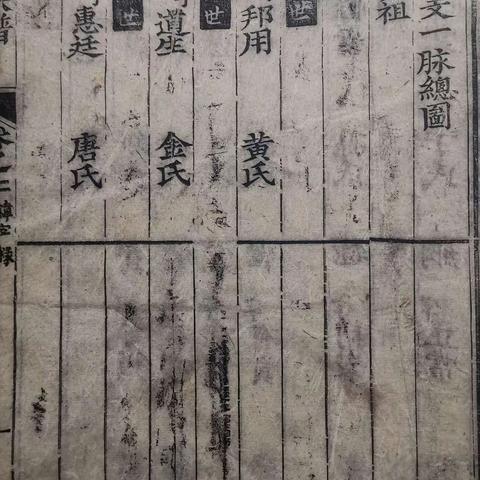 支一脉總圖
祖
世
邦用 黄氏
世
遺生 金氏
世
惠廷 唐氏
譜
卷之二